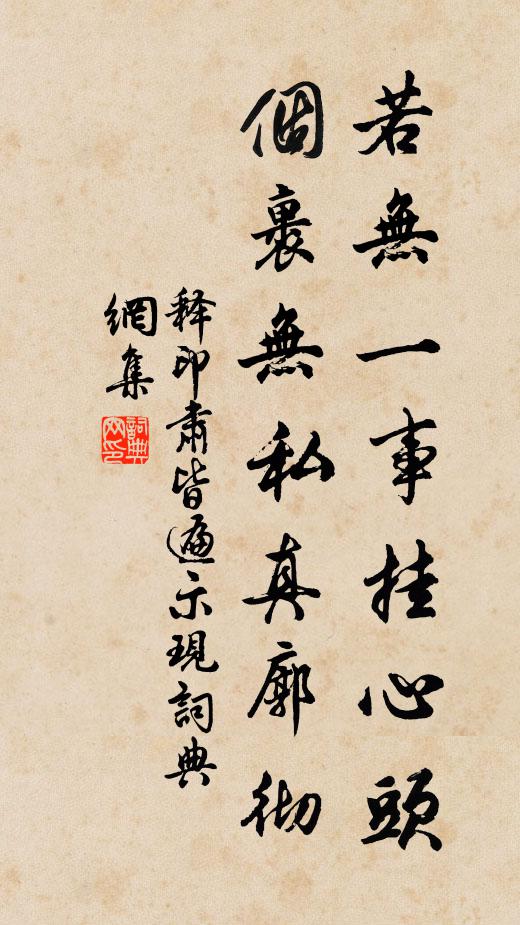 若無一事挂心頭
個裏無私真廓彻
释印肃皆遍示現詞典
網集
詞典
网印